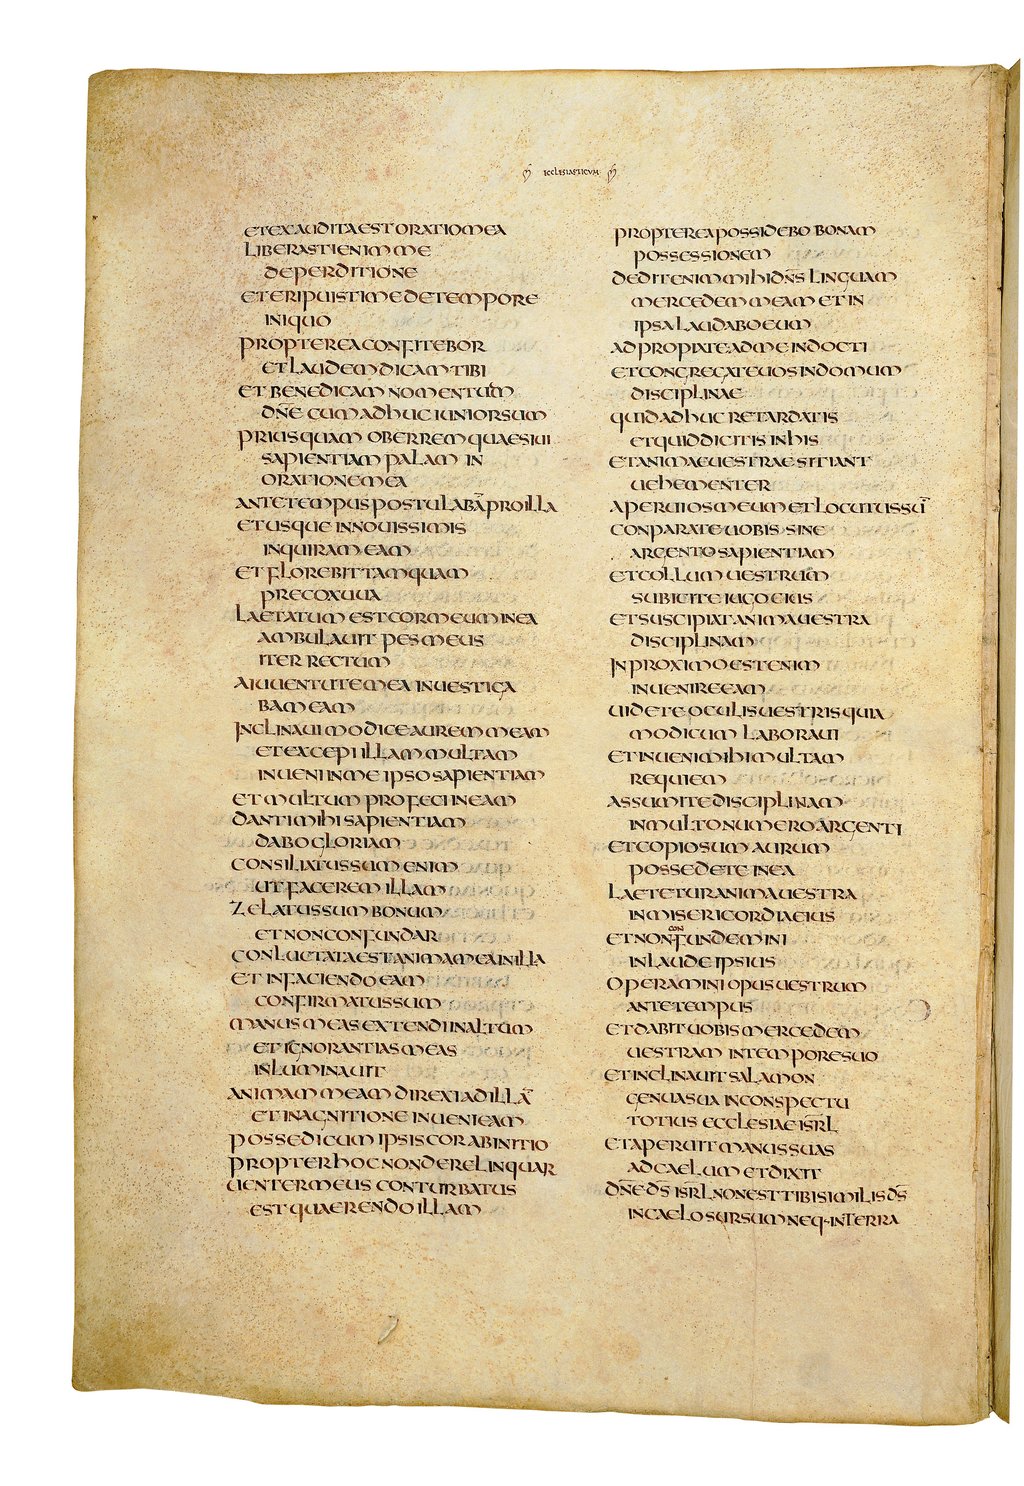 ECCLESIASTICUM
ET EXAUDITA EST ORATIO MEA
LIBERASTI ENIM ME
DE PERDITIONE
ET ERIPUISTI ME DE TEMPORE
INIQUO
PROPTEREA CONFITEBOR
ET LAUDEM DICAM TIBI
ET BENEDICAM NOMEN TUUM
DN̄E CUM ADHUC IUNIOR SUM
PRIUSQUAM OBERREM QUAESIUI
SAPIENTIAM PALAM IN
ORATIONE MEA
ANTE TEMPUS POSTULABĀ PRO ILLA
ET USQUE IN NOUISSIMIS
INQUIRAM EAM
ET FLOREBIT TAMQUAM
PRECOX UUA
LAETATUM EST COR MEUM IN EA
AMBULAUIT PES MEUS
ITER RECTUM
A IUUENTUTE MEA INUESTIGA
BAM EAM
INCLINAUI MODICE AUREM MEAM
ET EXCEPI ILLAM MULTAM
INUENI IN ME IPSO SAPIENTIAM
ET MULTUM PROFECI IN EAM
DANTI MIHI SAPIENTIAM
DABO GLORIAM
CONSILIATUS SUM ENIM
UT FACEREM ILLAM
ZELATUS SUM BONUM
ET NON CONFUNDAR
CONLUCTATA EST ANIMA MEA IN ILLA
ET IN FACIENDO EAM
CONFIRMATUS SUM
MANUS MEAS EXTENDI IN ALTUM
ET IGNORANTIAS MEAS
INLUMINAUIT
ANIMAM MEAM DIREXI AD ILLĀ
ET IN AGNITIONE INUENI EAM
POSSEDI CUM IPSIS COR AB INITIO
PROPTER HOC NON DERELINQUAR
UENTER MEUS CONTURBATUS
EST QUAERENDO ILLAM
PROPTEREA POSSIDEBO BONAM
POSSESSIONEM
DEDIT ENIM MIHI DN̄S LINGUAM
MERCEDEM MEAM ET IN
IPSA LAUDABO EUM
ADPROPIATE AD ME INDOCTI
ET CONGREGATE UOS IN DOMUM
DISCIPLINAE
QUID ADHUC RETARDATIS
ET QUID DICITIS IN HIS
ET ANIMAE UESTRAE SITIANT
UEHEMENTER
APERUI OS MEUM ET LOCUTUS SŪ
CONPARATE UOBIS SINE
ARGENTO SAPIENTIAM
ET COLLUM UESTRUM
SUBICITE IUGO EIUS
ET SUSCIPIAT ANIMA UESTRA
DISCIPLINAM
IN PROXIMO EST ENIM
INUENIRE EAM
UIDETE OCULIS UESTRIS QUIA
MODICUM LABORAUI
ET INUENI MIHI MULTAM
REQUIEM
ASSUMITE DISCIPLINAM
IN MULTO NUMERO ARGENTI
ET COPIOSUM AURUM
POSSEDETE IN EA
LAETETUR ANIMA UESTRA
IN MISERICORDIA EIUS
ET NON CONFUNDEMINI
IN LAUDE IPSIUS
OPERAMINI OPUS UESTRUM
ANTE TEMPUS
ET DABIT UOBIS MERCEDEM
UESTRAM IN TEMPORE SUO
ET INCLINAUIT SALAMON
GENUA SUA IN CONSPECTU
TOTIUS ECCLESIAE ISR̄L
ET APERUIT MANUS SUAS
AD CAELUM ET DIXIT
DN̄E D̄S ISR̄L NON EST TIBI SIMILIS D̄S
IN CAELO SURSUM NEQ· IN TERRA